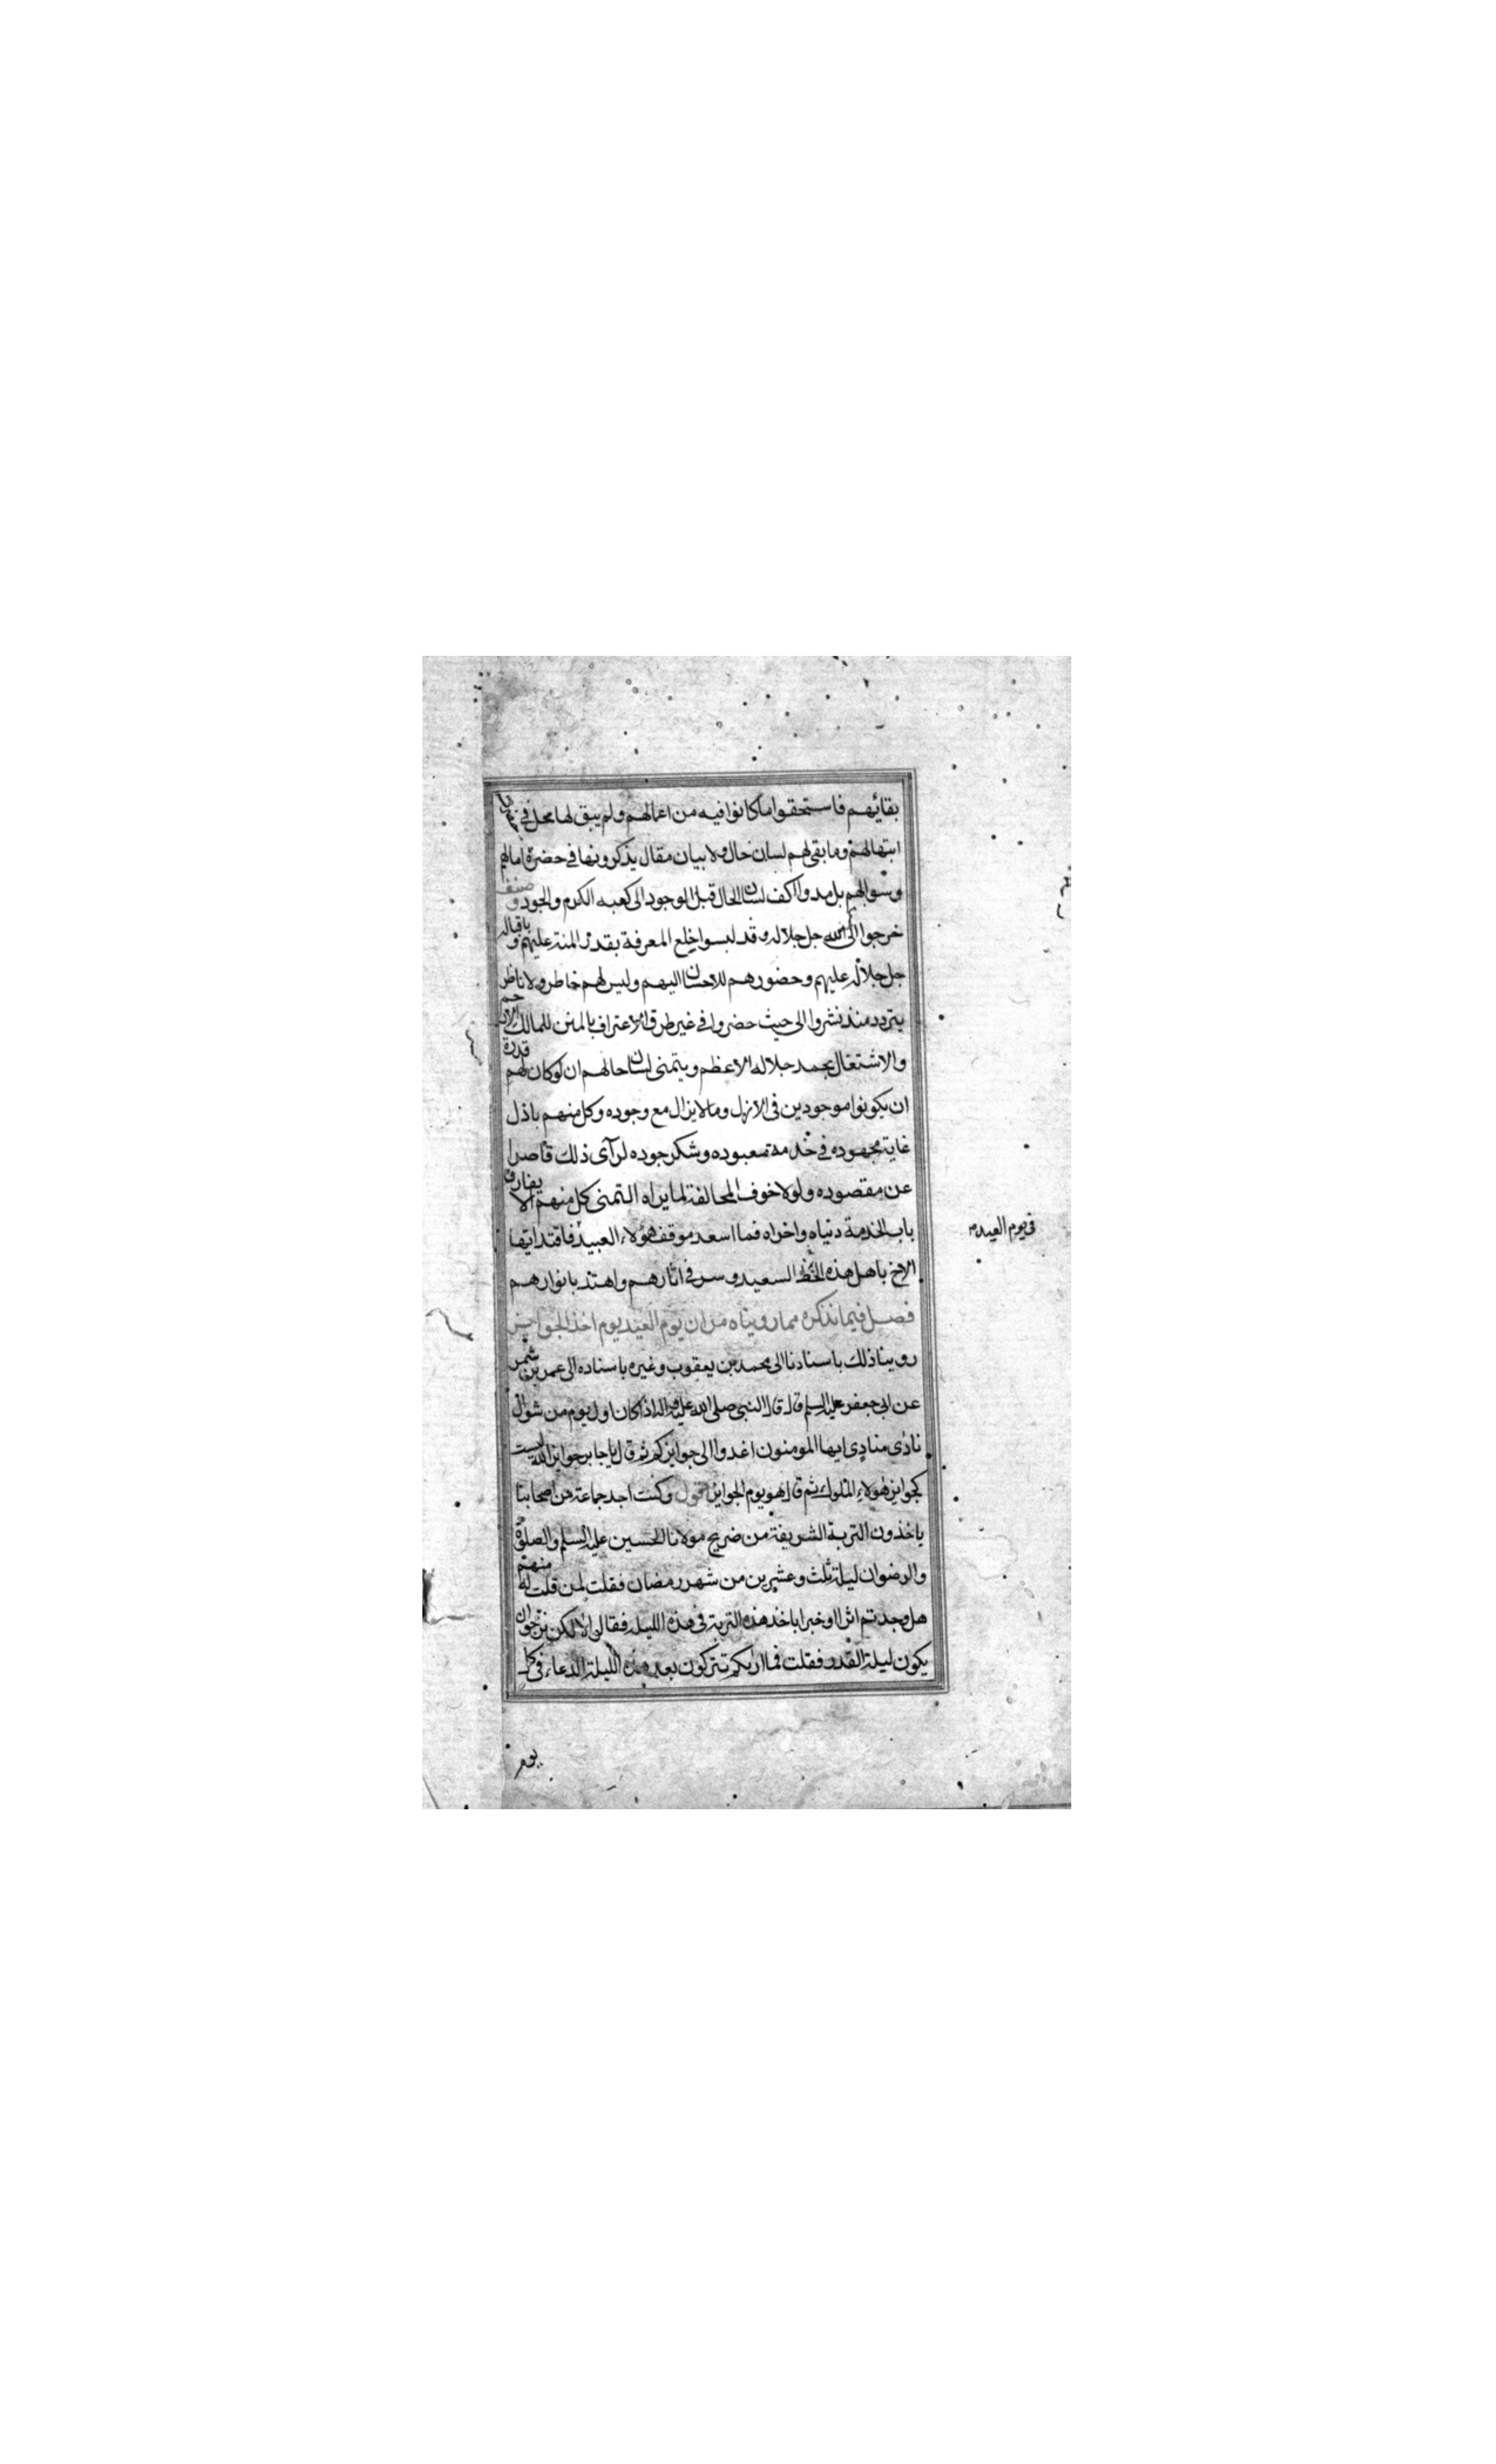 بقائهم فاستحقوا ما كانوا فيه من اعمالهم ولم يبق لها محل في
ابتهالهم وما بقى لهم لسان حال ولا بيان مقال يذكرونها في حضرة امالهم
وسوالهم بل مدوا اكف لسان الحال قبل الوجود الى كعبه الكرم والجود وصنف
خرجوا الى الله جل جلاله وقد لبسوا خلع المعرفة بقدر المنة عليهم وباقباله
جل جلاله عليهم وحضورهم للاحسان اليهم وليس لهم خاطر ولا ناظر
يتردد منذ نشروا الى حيث حضروا في غير طرق الاعتراف بالمنن للمالك الارحم
والاشتغال بحمد جلاله الاعظم ويتمنى لسان حالهم ان لو كان لهم قدرة
ان يكونوا موجودين في الازل وما لا يزال مع وجوده وكل منهم باذل
غاية مجهوده في خدمة معبوده وشكر جوده لرآى ذلك قاصرا
عن مقصوده ولولا خوف المخالفة لما يراه التمنى كل منهم الا يفارق
باب الخدمة دنياه واخراه فما اسعد موقف هؤلاء العبيد فاقتد ايها
الاخ باهل هذه الخظ السعيد وسر في اثارهم واهتد بانوارهم
فصل فيما نذكره مما رويناه من ان يوم العيد يوم اخذ الجوايز
روينا ذلك باسنادنا الى محمد بن يعقوب وغيره باسناده الى عمر بن شمر
عن ابى جعفر عليه السلم قال قال النبى صلى الله عليه واله اذا كان اول يوم من شوال
نادى منادى ايها المومنون اغدوا الى جوايزكم ثم قال يا جابر جوايز الله ليست
كجوايز هولاء الملوك ثم قال هو يوم الجوايز اقول وكنت اجد جماعة من اصحابنا
ياخذون التربة الشريفة من ضريح مولانا الحسين عليه السلم والصلوة
والرضوان ليلة ثلث وعشرين من شهر رمضان فقلت لمن قلت له منهم
هل وجدتم اثرا او خبرا باخذ هذه التربة في هذه الليلة فقالى لا لكن نرجو ان
يكون ليلة القدر فقلت فما اراكم تتركون بعد هذه الليلة الدعاء في كل
في يوم العيد
يوم